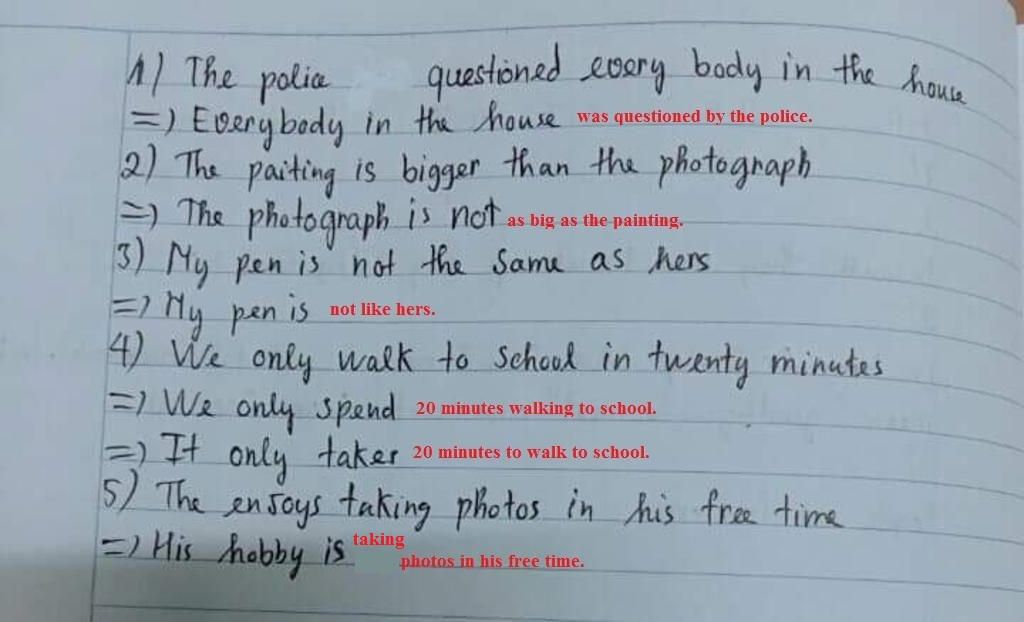 1) The police questioned every body in the house
=) Everybody in the house was questioned by the police.
2) The paiting is bigger than the photograph
=) The photograph is not as big as the painting.
3) My pen is not the same as hers
=) My pen is not like hers.
4) We only walk to school in twenty minutes
=) We only spend 20 minutes walking to school.
=) It only takes 20 minutes to walk to school.
5) The enjoys taking photos in his free time
=) His hobby is taking
photos in his free time.